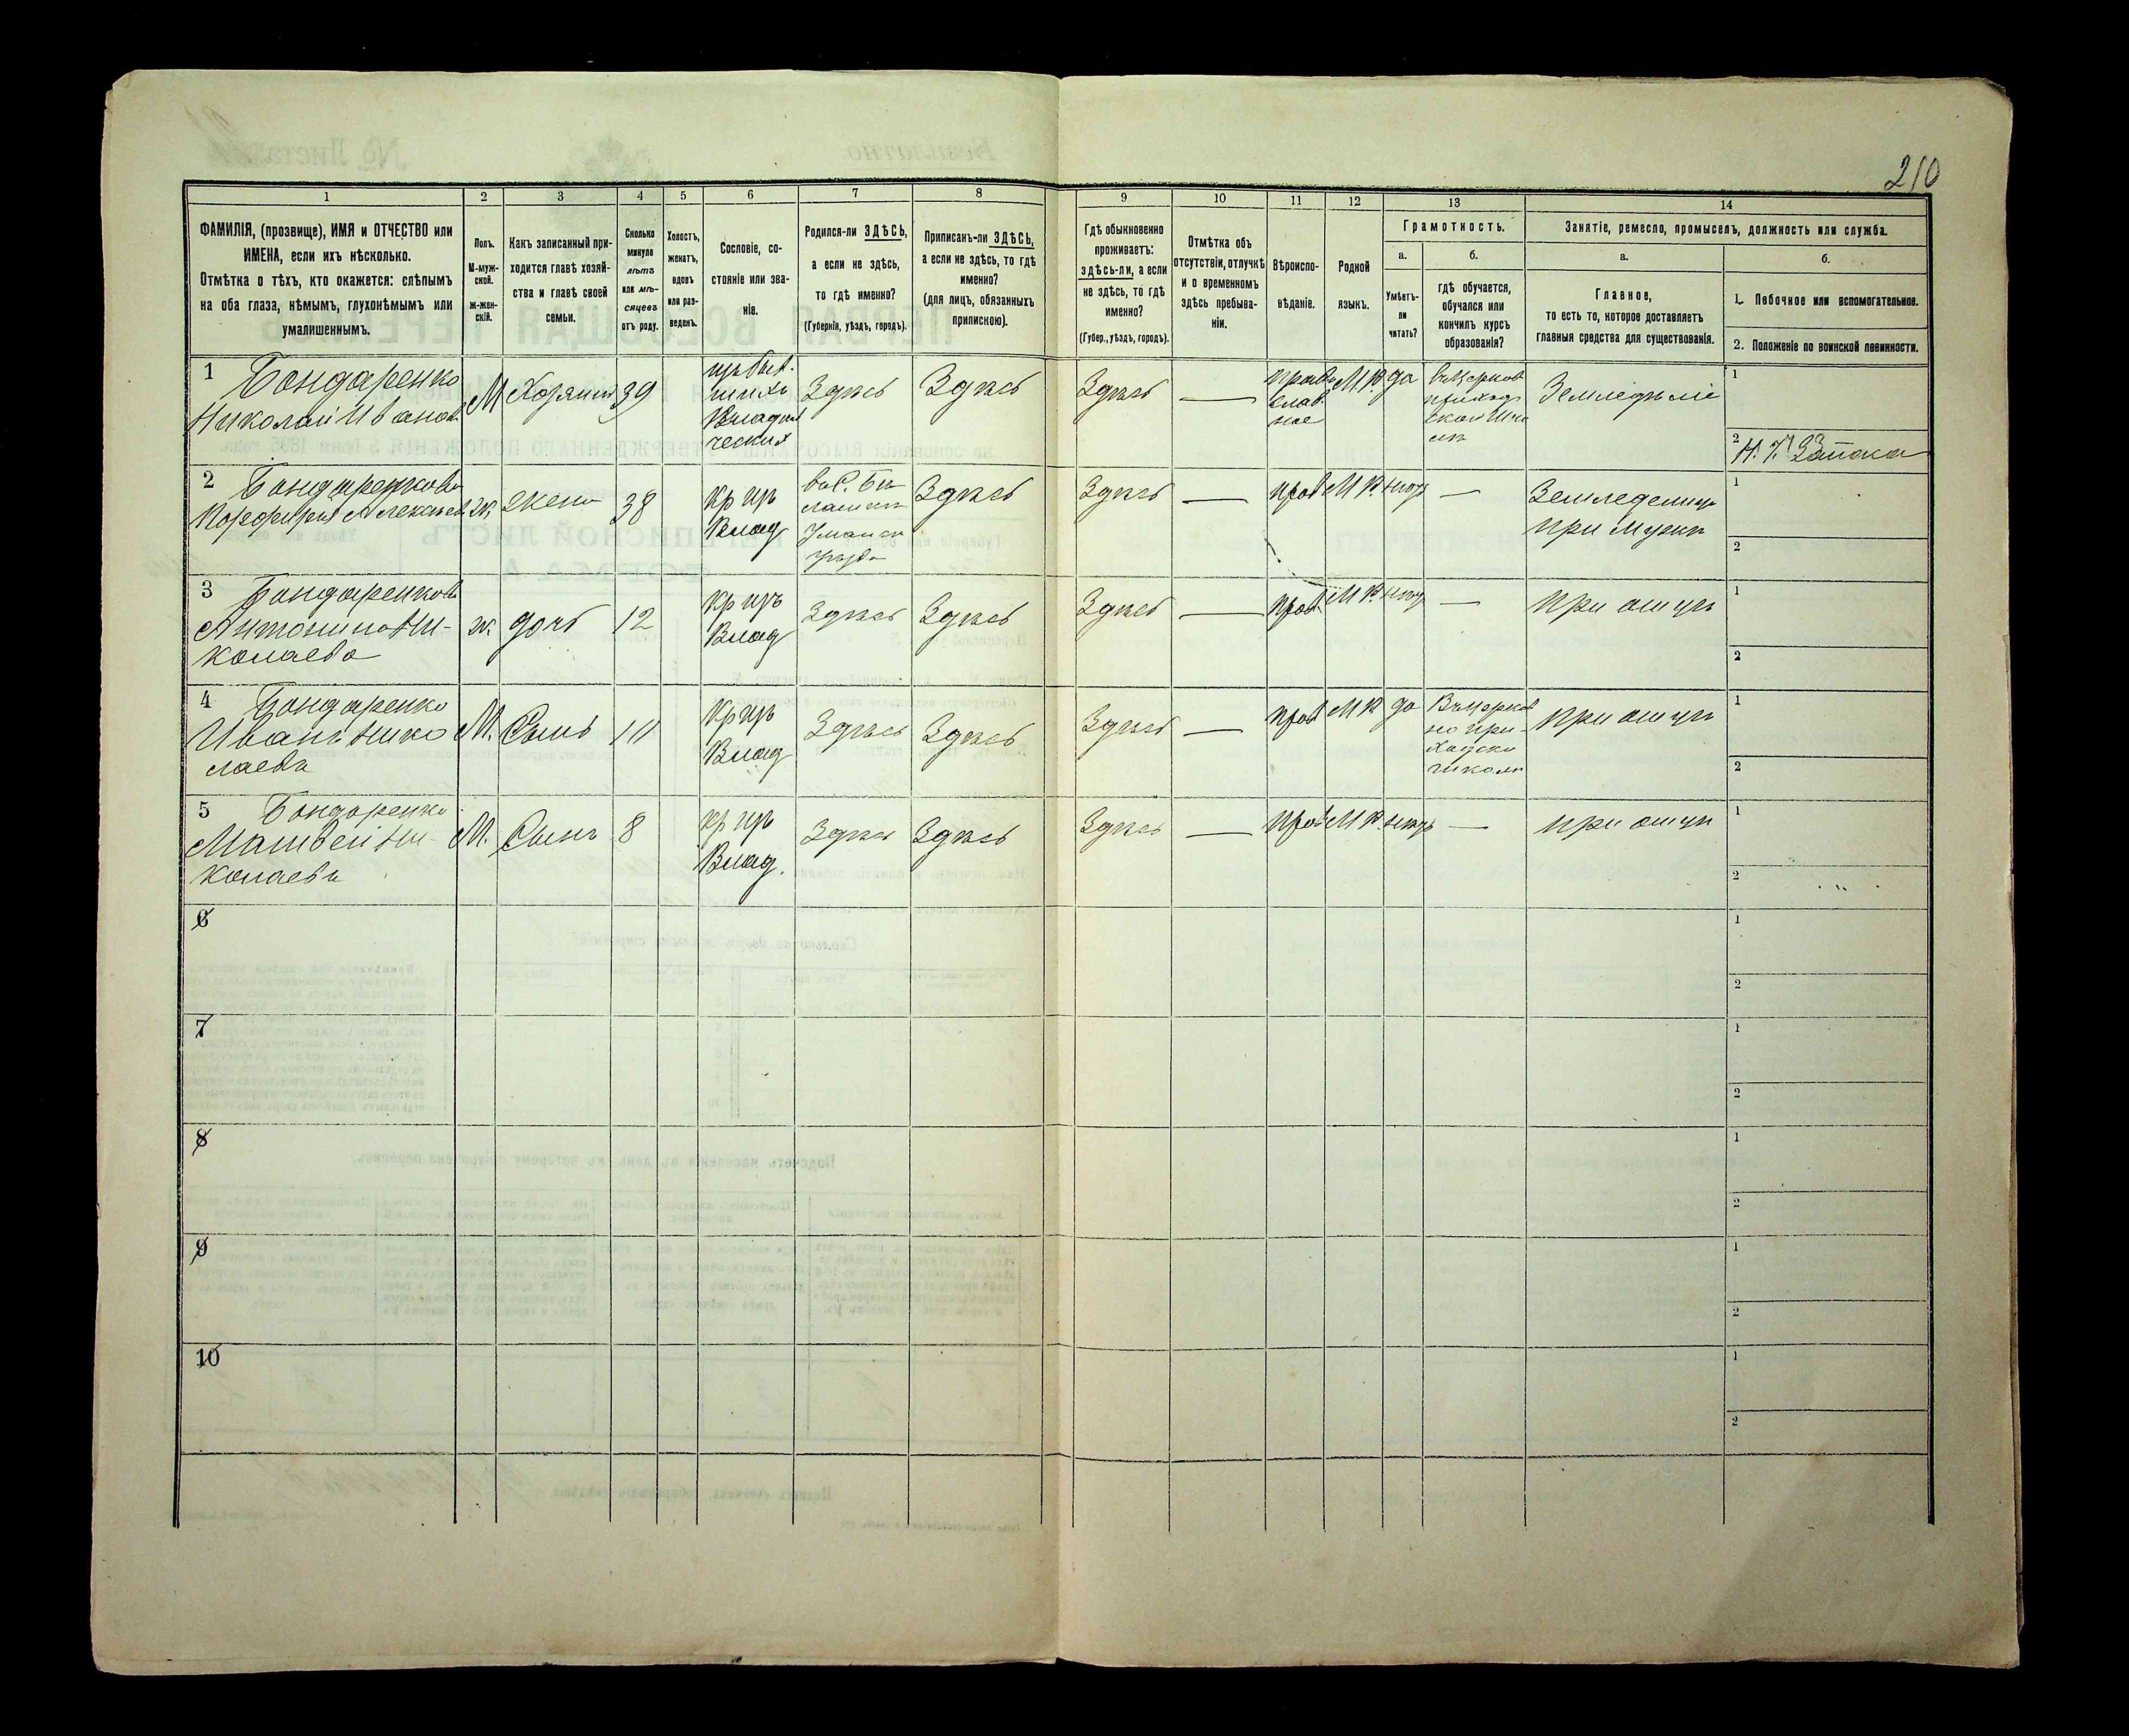 210
1
2
3
4
5
6
7
8
9
10
11
12
13
14
ФАМИЛІЯ, (прозвище), ИМЯ и ОТЧЕСТВО или
ИМЕНА, если ихъ нѣсколько.
Отмѣтка о тѣхъ, кто окажется: слѣпымъ
на оба глаза, нѣмымъ, глухонѣмымъ или
умалишеннымъ.
Полъ.
М-муж-
ской.
ж-жен-
скій.
Какъ записанный при-
ходится главѣ хозяй-
ства и главѣ своей
семьи.
Сколько
минуло
лѣтъ
или мѣ-
сяцевъ
отъ роду.
Холостъ,
женатъ,
вдовъ
или раз-
веденъ.
Сословіе, со-
стояніе или зва-
ніе.
Родился-ли ЗДѢСЬ,
а если не здѣсь,
то гдѣ именно?
(Губернія, уѣздъ, городъ).
Приписанъ-ли ЗДѢСЬ,
а если не здѣсь, то гдѣ
именно?
(для лицъ, обязанныхъ
припискою).
Гдѣ обыкновенно
проживаетъ:
здѣсь-ли, а если
не здѣсь, то гдѣ
именно?
(Губер., уѣздъ, городъ).
Отмѣтка объ
отсутствіи, отлучкѣ
и о временномъ
здѣсь пребыва-
ніи.
Вѣроиспо-
вѣданіе.
Родной
языкъ.
Грамотность.
а.
Умѣетъ-
ли
читать?
б.
гдѣ обучается,
обучался или
кончилъ курсъ
образованія?
Занятіе, ремесло, промыселъ, должность или служба.
а.
Главное,
то есть то, которое доставляетъ
главныя средства для существованія.
б.
1. Побочное или вспомогательное.
2. Положеніе по воинской повинности.
1
Бондаренко
Николай Иванов
М
Хозяинъ
39
Здѣсь
Здѣсь
Здѣсь
—
право
слав.
ное
М.Р.
да
Земледѣліе
1
2
2
Бондаренкова
ж.
жена
38
Кр изъ
Влад
Здѣсь
Здѣсь
—
прав
М Р.
—
при мужѣ
1
2
3
Бондаренкова
Антонина Ни-
колаева
ж.
дочь
12
Кр изъ
Влад
Здѣсь
Здѣсь
Здѣсь
—
прав
М Р.
—
при отцѣ
1
2
4
Бондаренко
Иванъ Нико
лаевъ
М.
Сынъ
10
Кр изъ
Влад
Здѣсь
Здѣсь
Здѣсь
—
прав
М Р
да
при отцѣ
1
2
5
Бондаренко
Матвей Ни-
колаевъ
М.
Сынъ
8
Кр изъ
Влад.
Здѣсь
Здѣсь
Здѣсь
—
прав
М Р.
—
при отцѣ
1
2
6
1
2
7
1
2
8
1
2
9
1
2
10
1
2